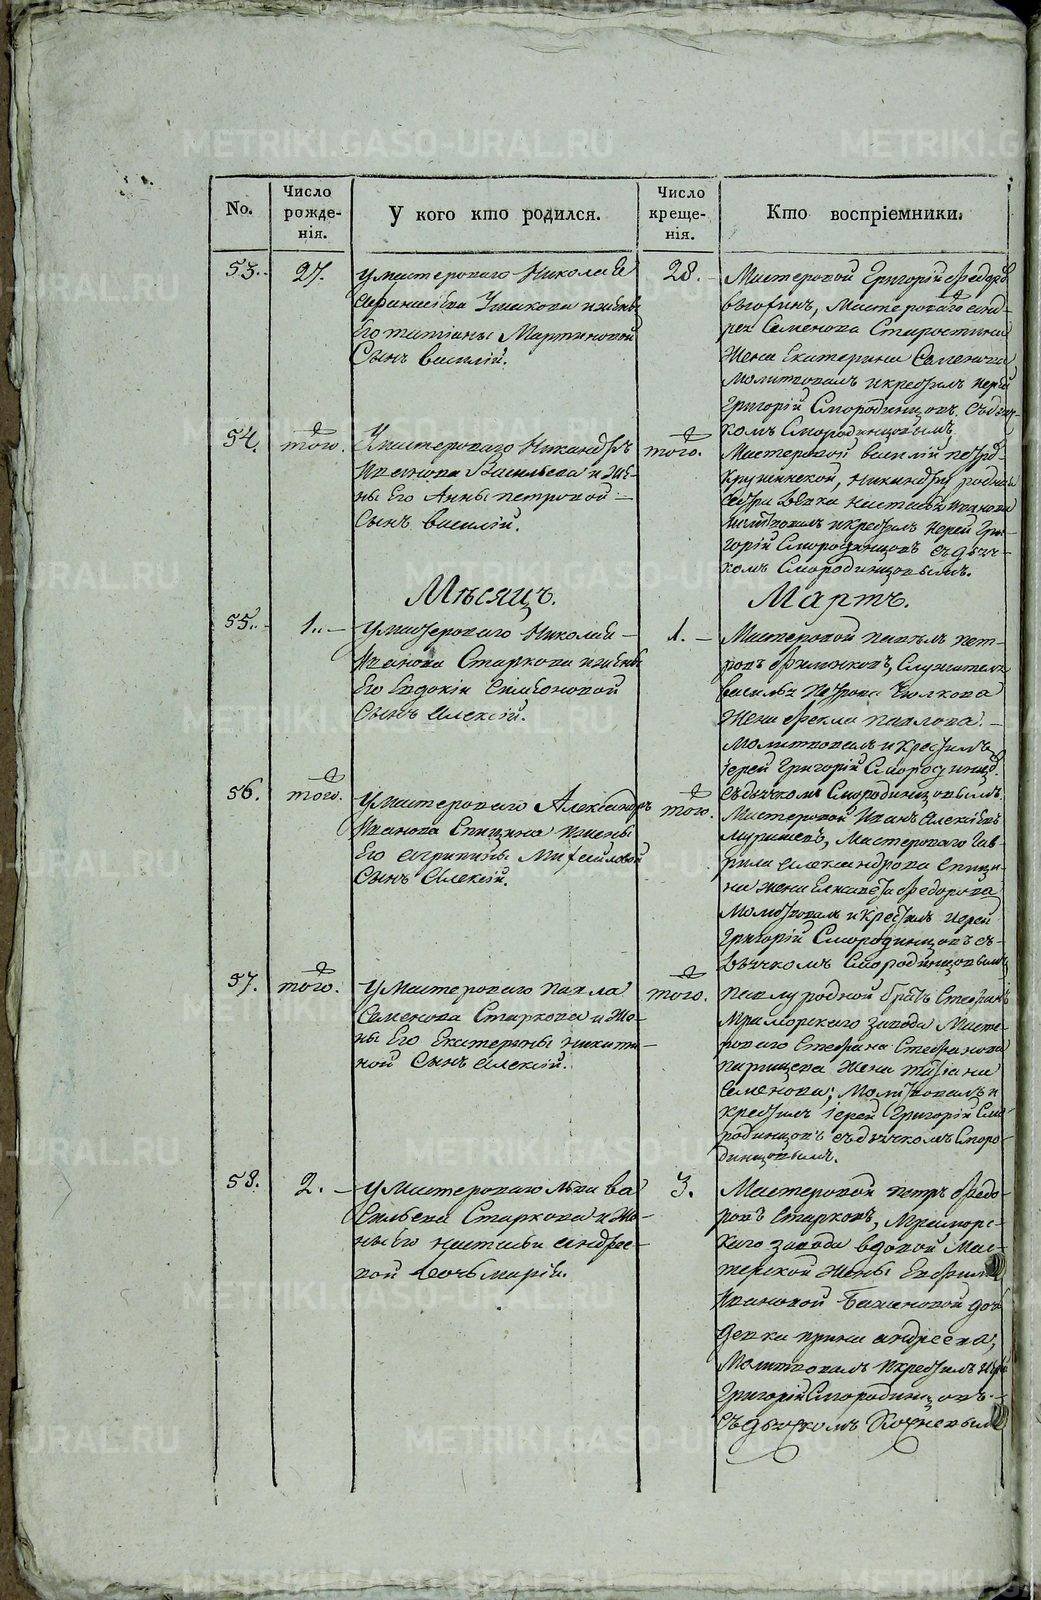 No.
Число рожде- нія.
У кого кто родился.
Число креще- нія.
Кто воспріемники.
53.
27.
у мастероваго Николая
Ушакова и жены
Его татіаны Мартиновой
Сынъ василій.
28.
Мастеровой Григорій Федоръ
Мастероваго анд-
рея Семенова Старостина
Жена Екатерина Семенова
Молитвовалъ и крестилъ Іерей
Григорій Смородинцовъ, съ дьяч-
комъ Смородинцовымъ.
54.
того.
У мастероваго Никандръ
Иванова Васильева и же-
ны Его Анны петровой
Сынъ василій.
того.
Мастеровой василій петро-
никандру родная
сестра девка настасья иванова
молитвовалъ и крестилъ Іерей Гри-
горій Смородинцовъ съ дьяч-
комъ Смородинцовымъ.
Мѣсяцъ.
Мартъ.
55.
1.
у мастероваго Николая
Иванова Старкова и жены
Его Евдокіи Симеоновой
Сынъ алексій.
1.
Мастеровой павелъ пет-
ровъ Служителя
василья петрова
Жена Фекла павлова.
Молитвовалъ и крестилъ
Іерей Григорій Смородинцов.
съ дьячкомъ Смородинцовымъ.
56.
того.
у мастероваго Александръ
Иванова Спицина и жены
Его агрипины Михаиловой
Сынъ алексій.
того.
Мастеровой Иванъ алексіевъ
Мастероваго Гав-
рила александрова Спици-
на жена Елисавета Федорова
Молитвовалъ и крестилъ Іерей
Григорій Смородинцовъ съ
дьячкомъ Смородинцовымъ
57.
того.
у мастероваго павла
Семенова Старкова и же-
ны Его Екатерины никити-
ной Сынъ алексій.
того.
павлу родной братъ Стефанъ
Мраморскаго завода Масте-
роваго Стефана Стефанова
жена татіана
Семенова; Молитвовалъ и
крестилъ Іерей Григорій Смо-
родинцовъ съ дьячкомъ Сморо-
динцовымъ.
58.
2.
у мастероваго льва ва-
сильева Старкова и же-
ны Его настасьи андрее-
вой дочь марія.
3.
Мастеровой петръ Федо-
ровъ Старковъ, Мраморс-
каго завода вдовой Мас-
терской жены
Ивановой Баженовой доч
девка ирина андреева,
Молитвовалъ и крестилъ Іерей
Григорій Смородинцовъ
съ дьячкомъ
METRIKI.GASO-URAL.RU